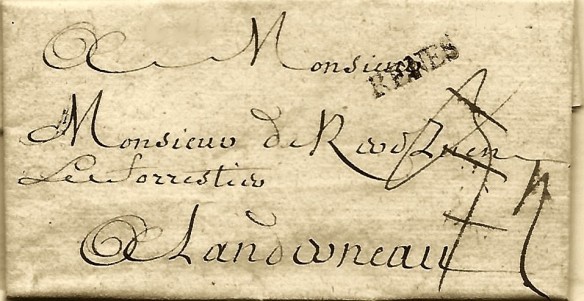 A Monsieur
RENES
Monsieur de
Le forrestier
A Landerneau